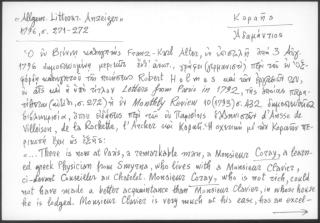 «Allgem. Litterar. Anzeiger»
1796, σ. 271-272
Κοραῆς
Ἀδαμάντιος
Ὁ ἐν Βιέννῃ καθηγητής Franz-Karl Alter, ἐν 3 Αὐγ.
1796 δημοσιευμένῃ γράφει (γερμανιστί) περί τοῦ ἐν Ὀξ-
φόρδῃ καθηγητοῦ τοῦ Robert Holmes καί τῶν
καί ὑπό τόν τίτλον Letters from Paris in 1792, τῆς ὁποίας
(αὐτόθι, σ. 272) ἡ ἐν Monthly Review 10 (1793) σ. 432 δημοσιευθεῖσα
βιβλιοκρισία, περί τῶν ἐν Παρισίοις ἑλληνιστῶν d'Ansse de
Villoison, de la Rochette, l'Archer καί Κοραῆ. Ἡ σχετική μέ τόν Κοραῆν πε-
ρικοπή ἔχει ὡς ἑξῆς:
«...There is now at Paris, a remarkable man, a Monsieur Coray, a learn-
ed greek Physician from Smyrna, who lives with a Monsieur Clavier,
ci-devant Conseiller au Chatelet. Monsieur Coray, who is not rich, could
not have made a better acquaintance than Monsieur Clavier, in whose house
he is lodged. Monsieur Clavier is very much at his ease, has an excel-